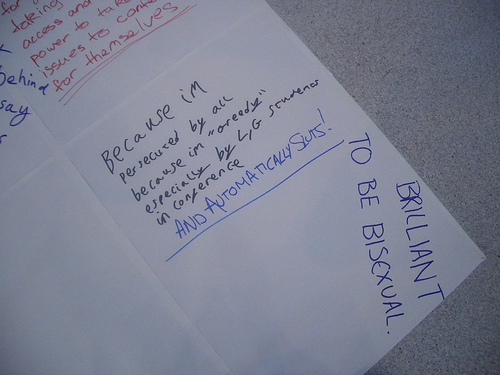 for
taking
access and
power to take
issues to
for themselves
behind
say
Because im
persecuted by all
because im "greedy"
especially by L/G students
in conference
AND AUTOMATICALLY SLUTS!
BRILLIANT
TO BE BISEXUAL.